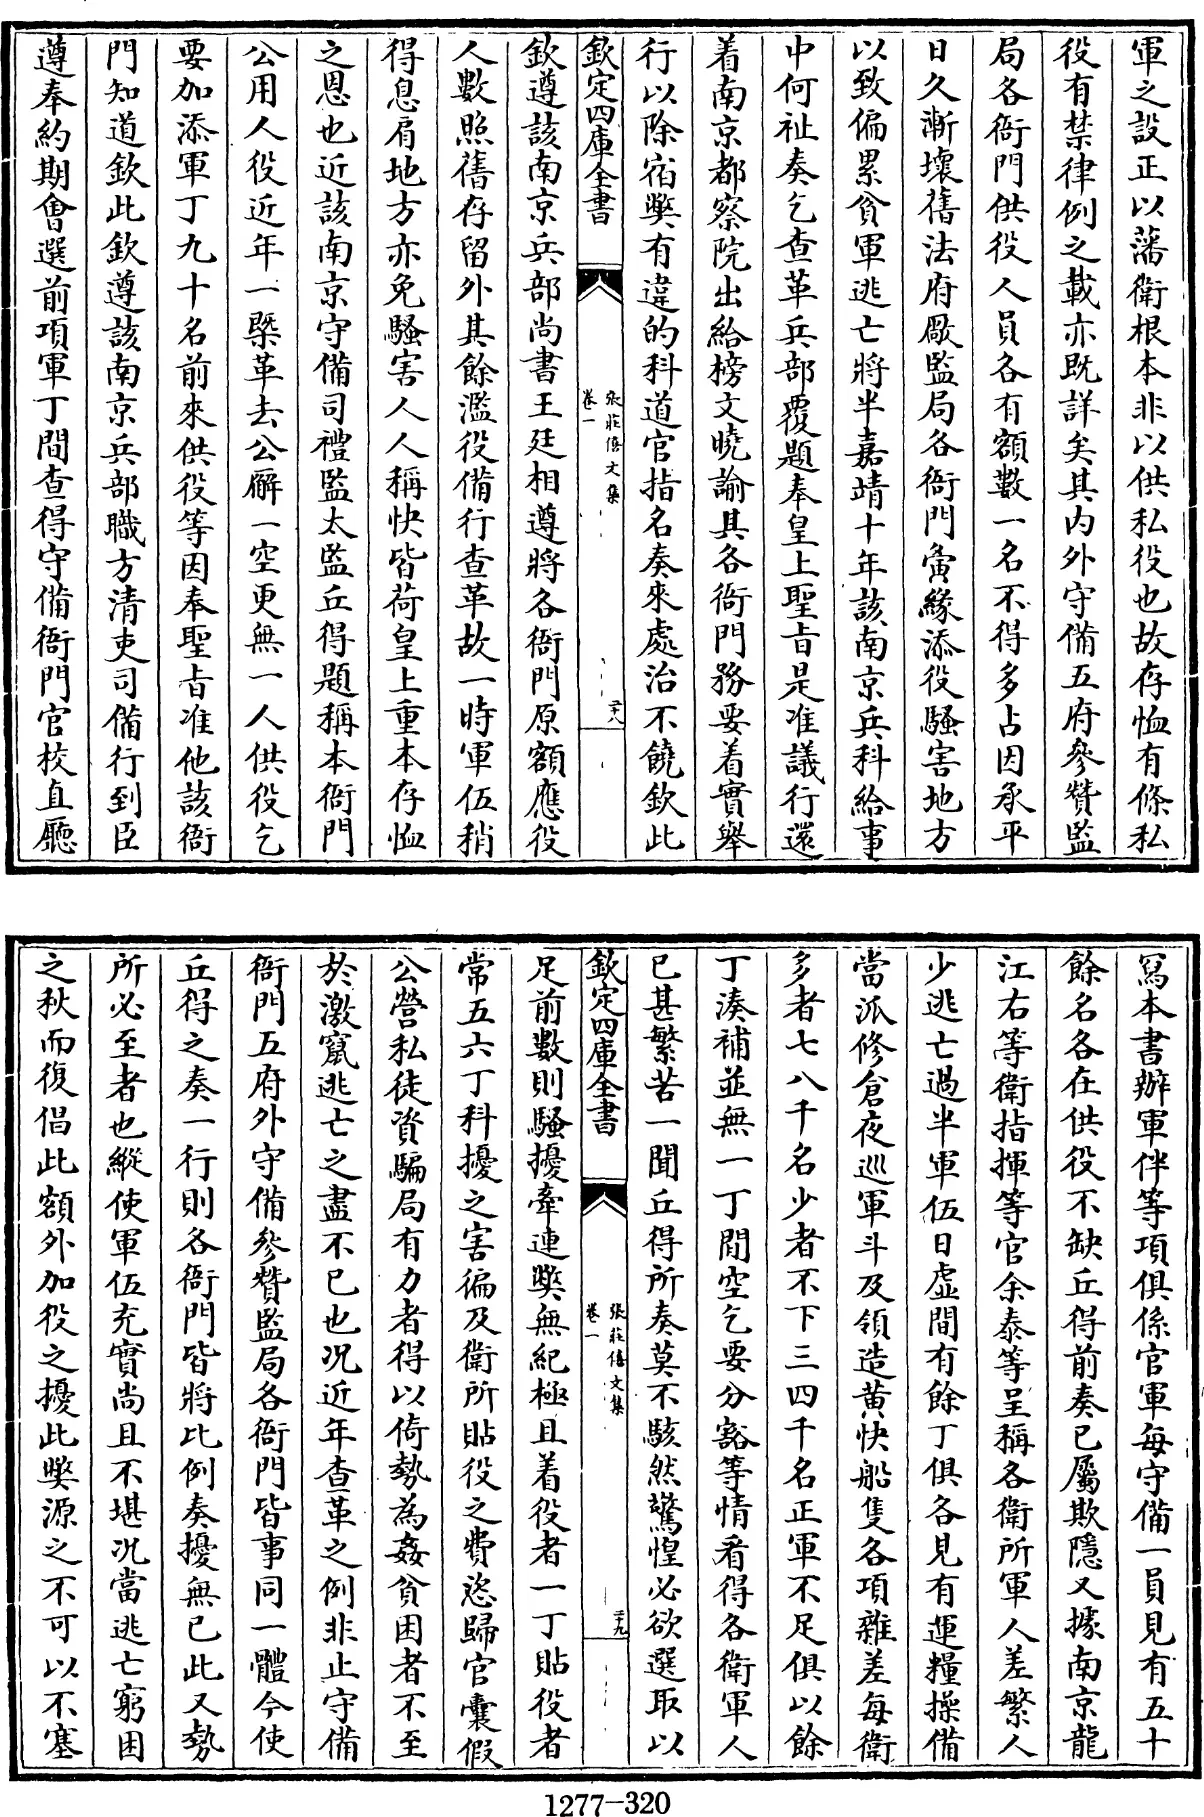 軍之設正以藩衛根本非以供私役也故存恤有條私
役有禁律例之載亦既詳矣其内外守備五府參贊監
局各衙門供役人員各有額數一名不得多占因承平
日久漸壞舊法府厫監局各衙門夤緣添役騷害地方
以致偏累貧軍逃亡將半嘉靖十年該南京兵科給事
中何祉奏乞查革兵部覆題奉皇上聖旨是准議行還
着南京都察院出給榜文曉諭其各衙門務要着實舉
行以除宿弊有違的科道官指名奏來處治不饒欽此
欽定四庫全書
張莊僖文集
卷一
二十八
欽遵該南京兵部尚書王廷相遵將各衙門原額應役
人數照舊存留外其餘濫役備行查革故一時軍伍稍
得息肩地方亦免騷害人人稱快皆荷皇上重本存恤
之恩也近該南京守備司禮監太監丘得題稱本衙門
公用人役近年一槩革去公廨一空更無一人供役乞
要加添軍丁九十名前來供役等因奉聖旨准他該衙
門知道欽此欽遵該南京兵部職方清吏司備行到臣
遵奉約期會選前項軍丁間查得守備衙門官校直廳
寫本書辦軍伴等項俱係官軍每守備一員見有五十
餘名各在供役不缺丘得前奏已屬欺隱又據南京龍
江右等衛指揮等官余泰等呈稱各衛所軍人差繁人
少逃亡過半軍伍日虛間有餘丁俱各見有運糧操備
當派修倉夜巡軍斗及領造黄快船隻各項雜差每衛
多者七八千名少者不下三四千名正軍不足俱以餘
丁湊補並無一丁閒空乞要分豁等情看得各衛軍人
已甚繁苦一聞丘得所奏莫不駭然驚惶必欲選取以
欽定四庫全書
張莊僖文集
卷一
二十九
足前數則騷擾牽連弊無紀極且着役者一丁貼役者
常五六丁科擾之害徧及衛所貼役之費恣歸官囊假
公營私徒資騙局有力者得以倚勢為姦貧困者不至
於激竄逃亡之盡不已也况近年查革之例非止守備
衙門五府外守備參贊監局各衙門皆事同一體今使
丘得之奏一行則各衙門皆將比例奏擾無已此又勢
所必至者也縱使軍伍充實尚且不堪况當逃亡窮困
之秋而復倡此額外加役之擾此弊源之不可以不塞
1277-320